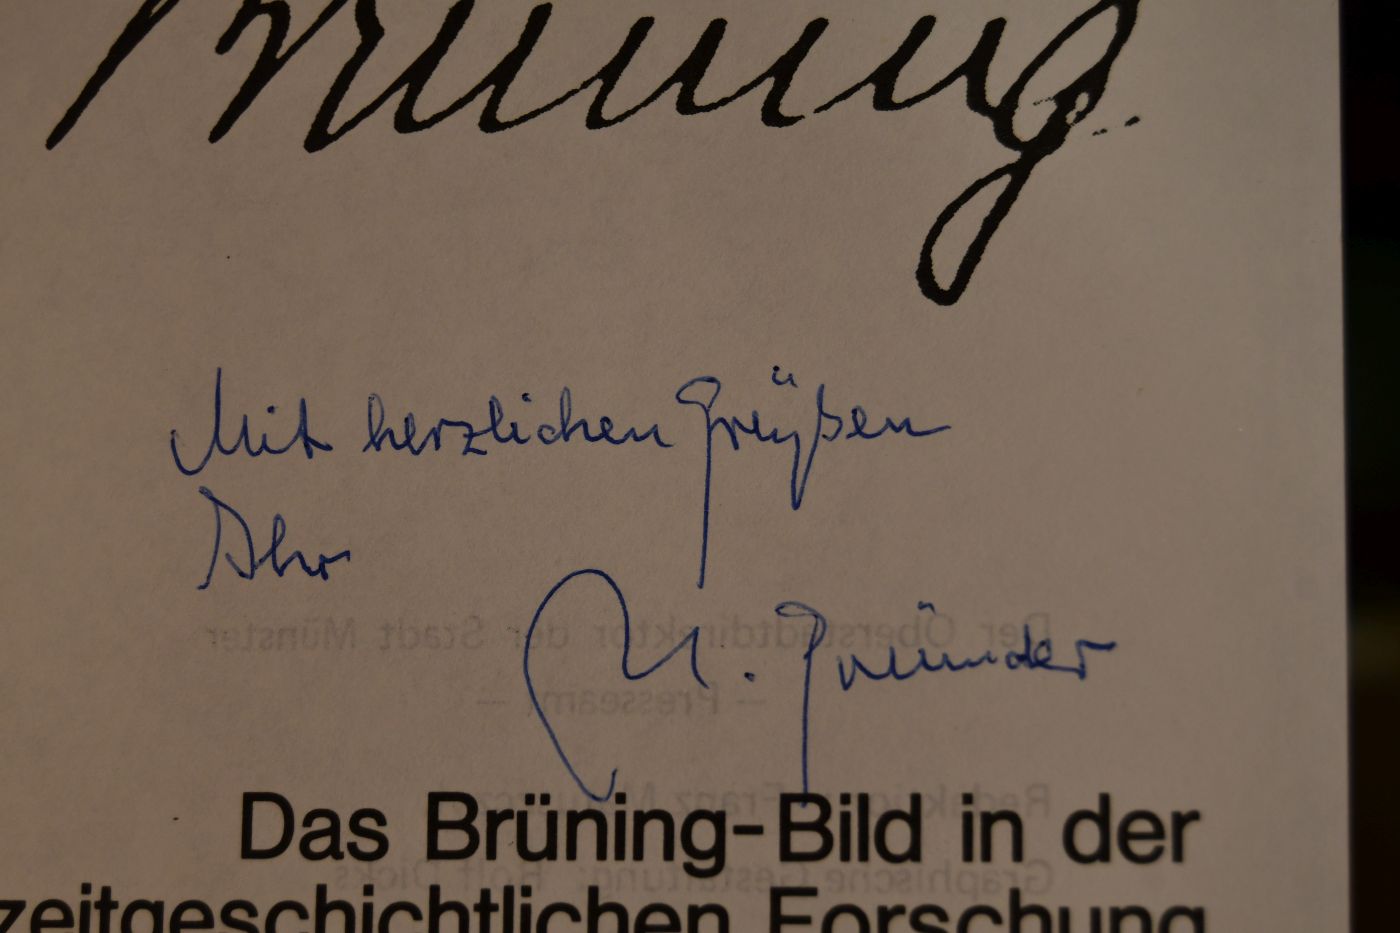 Brüning
Mit herzlichen Grüßen
Ihr
H. Gründer
Der Oberstadtdirektor der Stadt Münster
– Presseamt –
Redaktion: Franz
Graphische Gestaltung: Rolf Dicks
Das Brüning-Bild in der
zeitgeschichtlichen Forschung